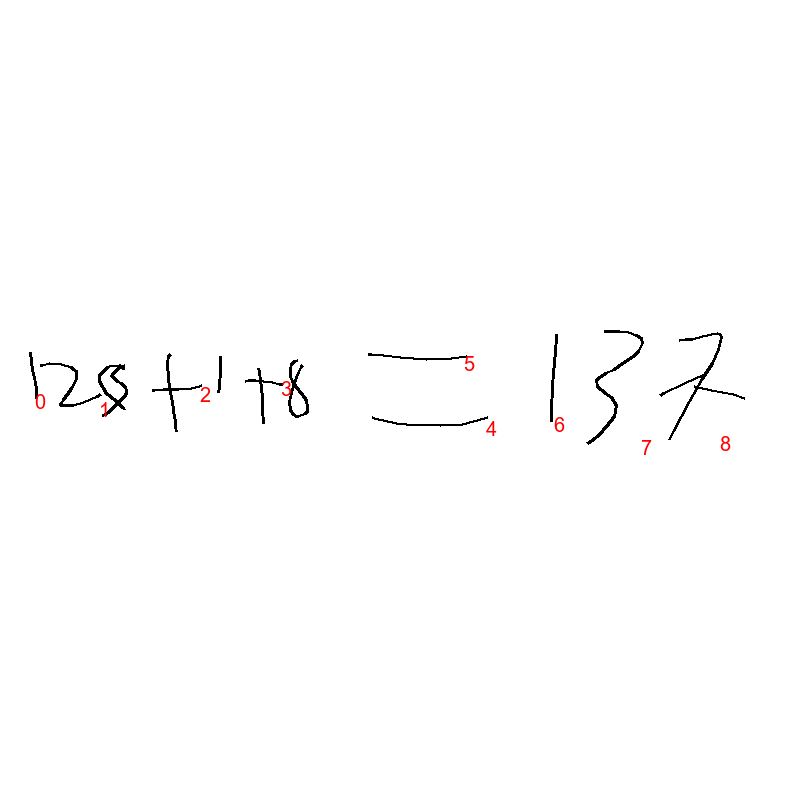 128+1+8=137
0 1 2 3 5 4 6 7 8